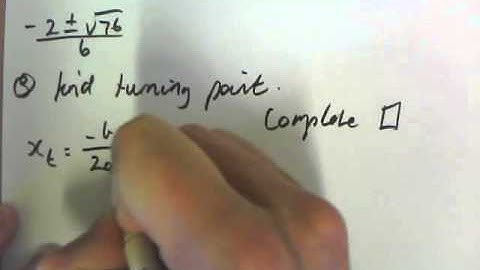 -2 ± √76
6
③ find turning point.
Complete □
x_t = -b
2a